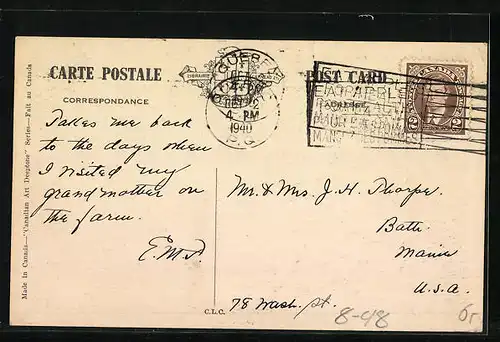 CARTE POSTALE
POST CARD
CORRESPONDANCE
QUEBEC
PM
1940
P.Q.
CANADA
2
Takes me back
to the days when
I visited my
grandmother on
the farm.
E.M.T.
Mr. & Mrs. J. H. Thorpe
Bath
Maine
U.S.A.
78 Wash. St.
8-48
C.L.C.
Made in Canada—"Canadian Art Deeptone" Series—Fait au Canada